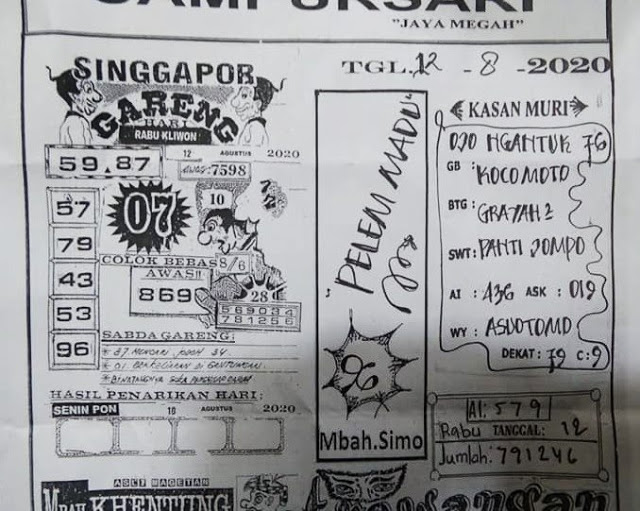 CAMPURSARI
"JAYA MEGAH"
SINGGAPOR
GARENG
HARI
RABU KLIWON
59.87
12 AGUSTUS 2020
AWAS:7598
57
79
43
53
96
07
10
COLOK BEBAS 8/6
AWAS!!
869
28
569034
781256
SABDA GARENG:
* 07. MENCARI JODOH 34.
HASIL PENARIKAN HARI:
SENIN PON 16 AGUSTUS 2020
TGL.12 - 8 - 2020
PELEM MADU
96
Mbah.Simo
KASAN MURI
DJO NGANTUK 76
GB : KOCOMOTO
BTG :
SWT: PANTI JOMPO
AI : 436 ASK : 019
WY : ASUOTOMO
DEKAT : 79 C:9
AI:579
Rabu TANGGAL: 12
Jumlah: 791246
ASLI MAGETAN
MBAH KHENTUNG